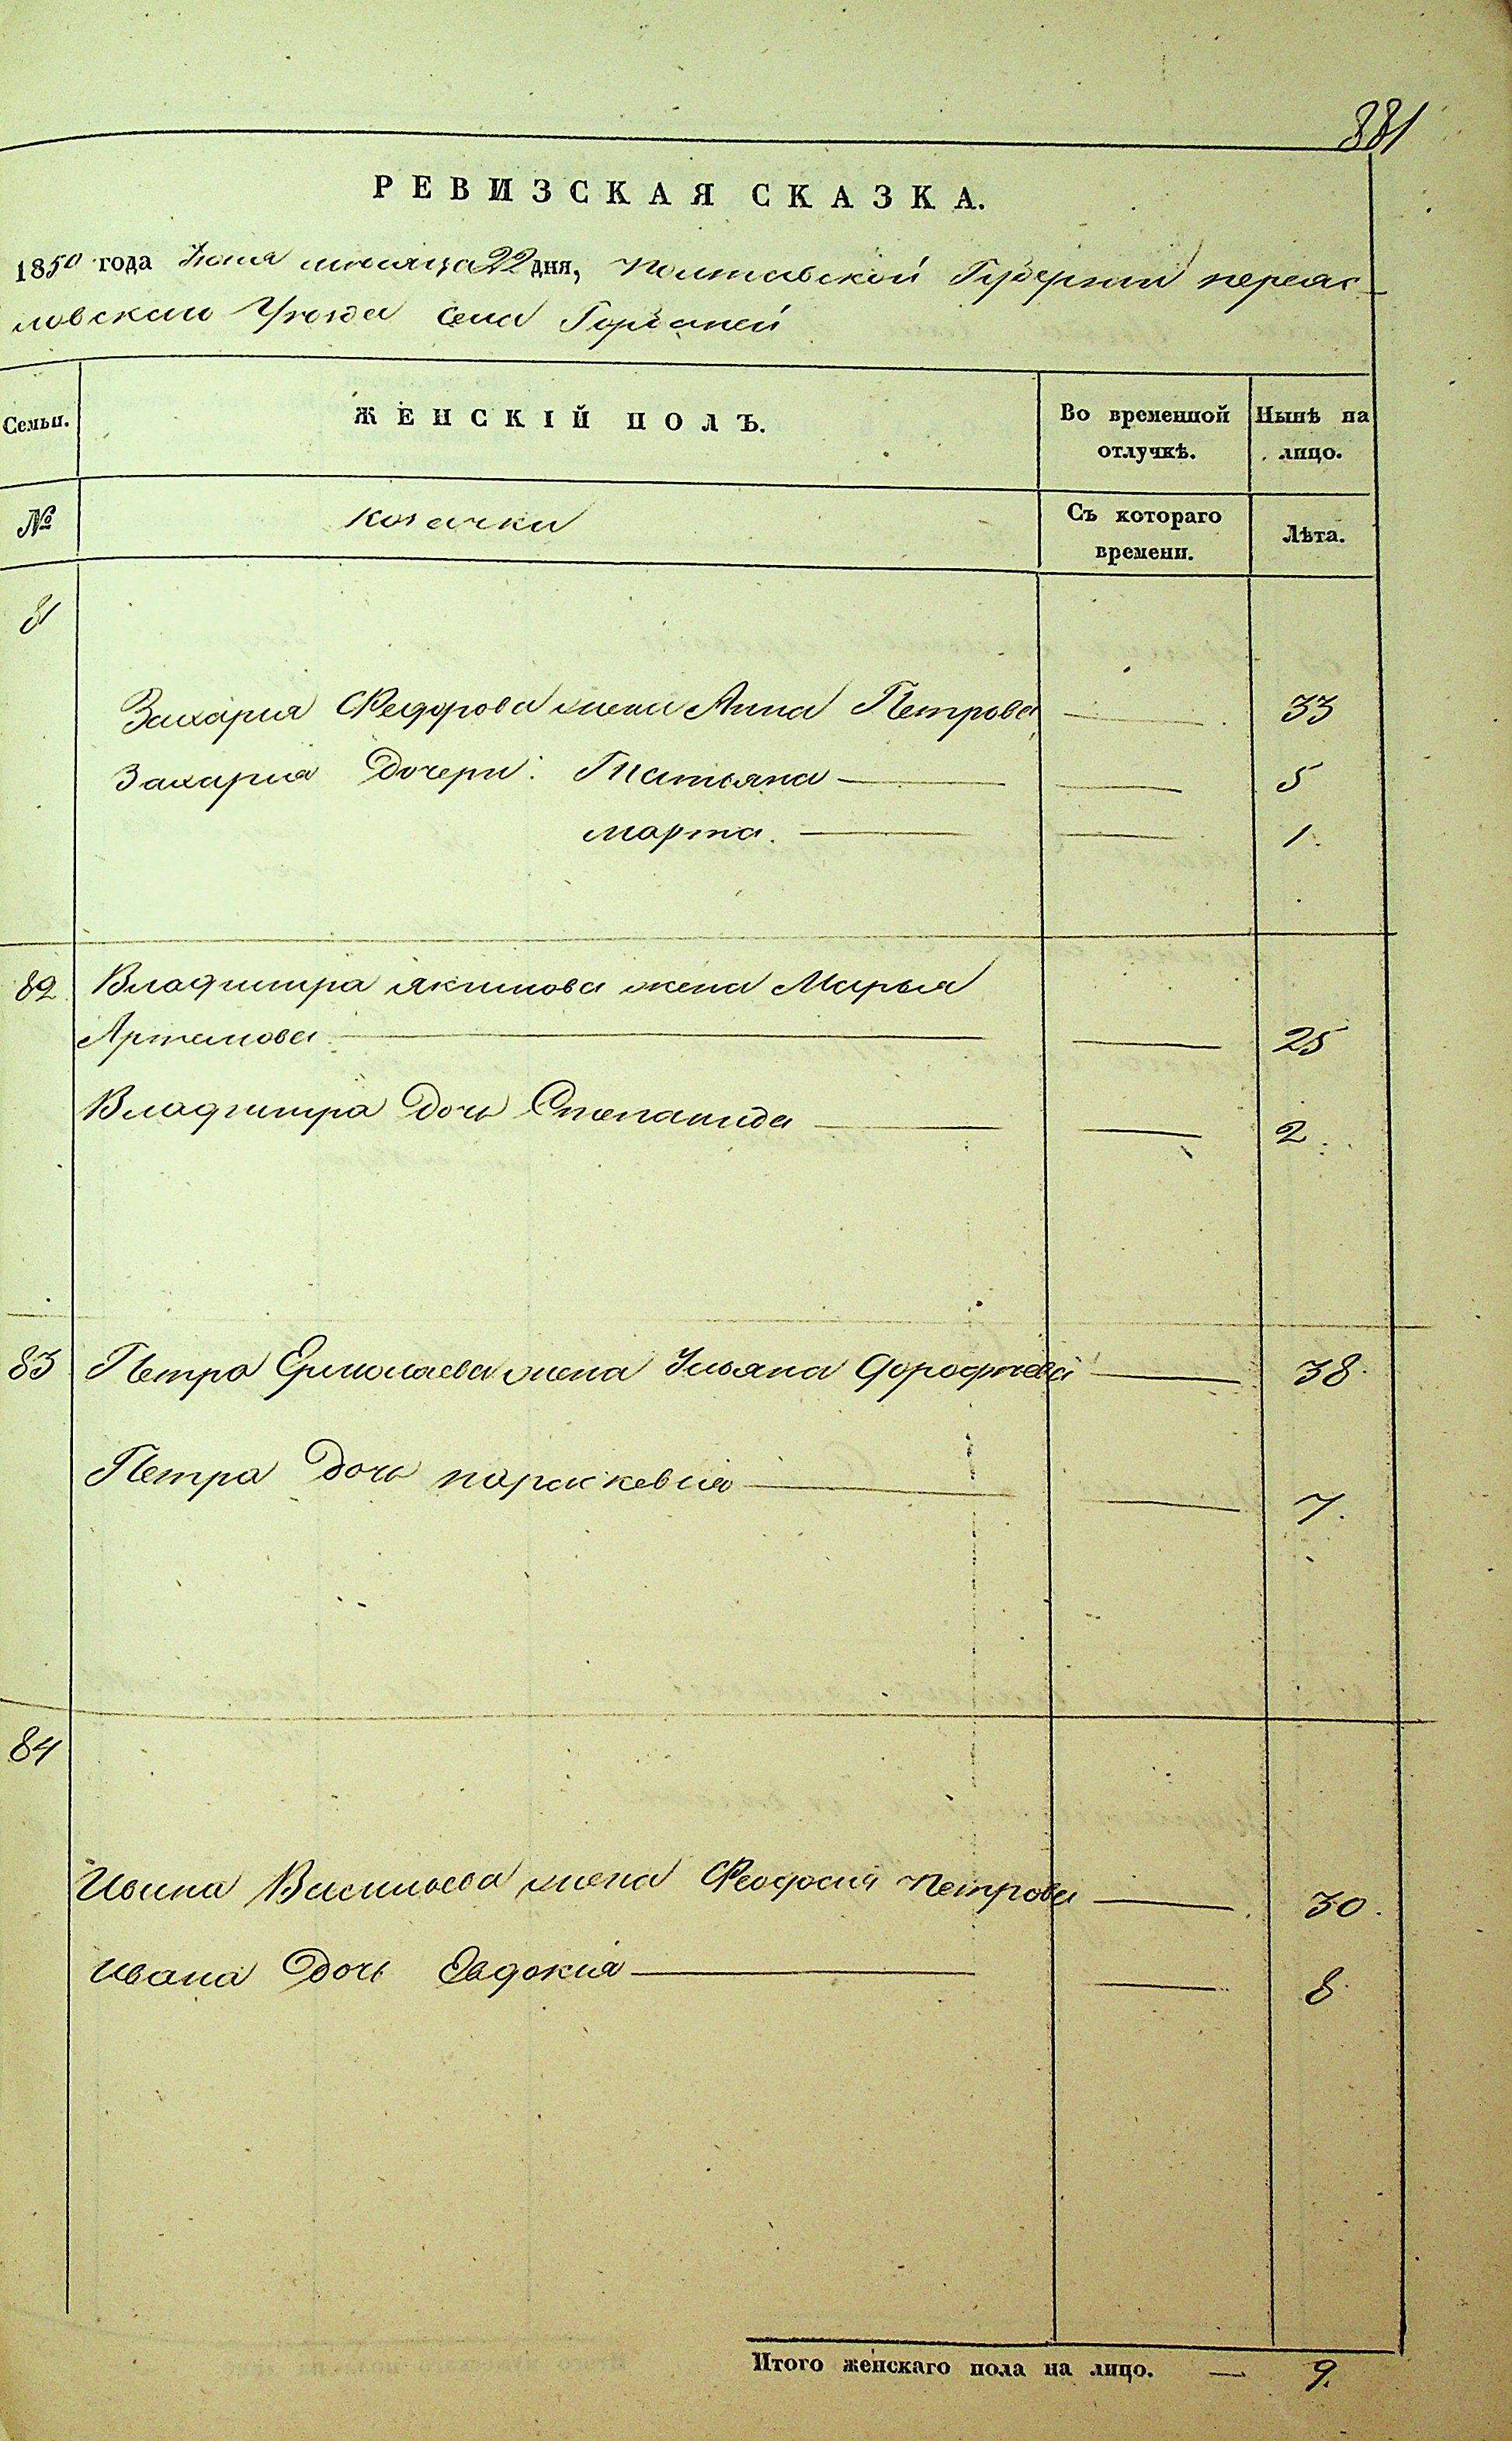 881
РЕВИЗСКАЯ СКАЗКА.
1850 года Июня месяца 22 дня, Полтавской Губернии переяс-
ловского Уезда села Горбаней
Семьи. ЖЕНСКІЙ ПОЛЪ. Во временной отлучкѣ. Нынѣ на лицо.
№ Козачки Съ котораго времени. Лѣта.
81
Захария Федорова жена Анна Петрова — 33
Захария Дочери: Татьяна — — 5
Марта. — — 1.
82 Владимира Якимова жена Марья
Артемова — — 25
Владимира Дочь Степанида — — 2.
83 Петра Ермолаева жена Ульяна Дорофѣева — 38.
Петра Дочь Параскевия — — 7.
84
Ивана Васильева жена Феодосия Петрова — 30.
Ивана Дочь Евдокия — — 8.
Итого женскаго пола на лицо. — 9.